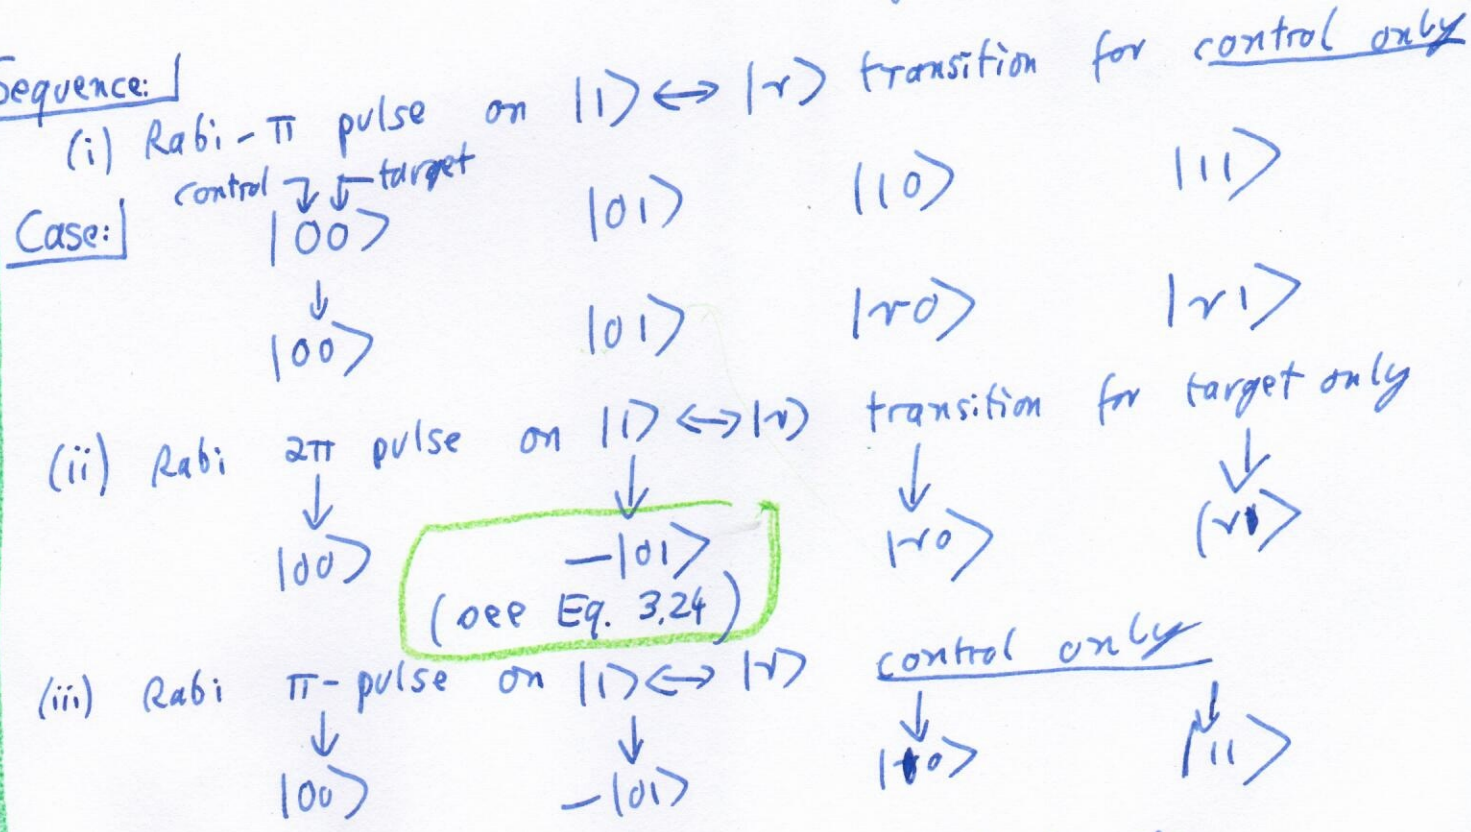 Sequence:
(i) Rabi-π pulse on |1⟩ ↔ |r⟩ transition for control only
control target
Case: |00⟩ |01⟩ |10⟩ |11⟩
↓
|00⟩ |01⟩ |r0⟩ |r1⟩
(ii) Rabi 2π pulse on |1⟩ ↔ |r⟩ transition for target only
↓ ↓ ↓ ↓
|00⟩ -|01⟩ |r0⟩ |r1⟩
(see Eq. 3.24)
(iii) Rabi π-pulse on |1⟩ ↔ |r⟩ control only
↓ ↓ ↓ ↓
|00⟩ -|01⟩ |10⟩ |11⟩